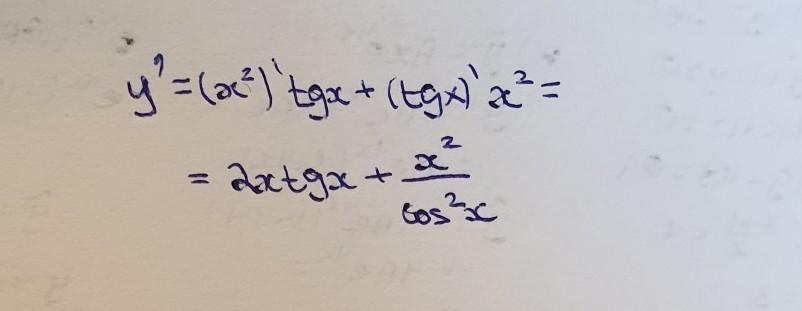 y' = (x²)' tgx + (tgx)' x² =
= 2xtgx + x²/cos²x